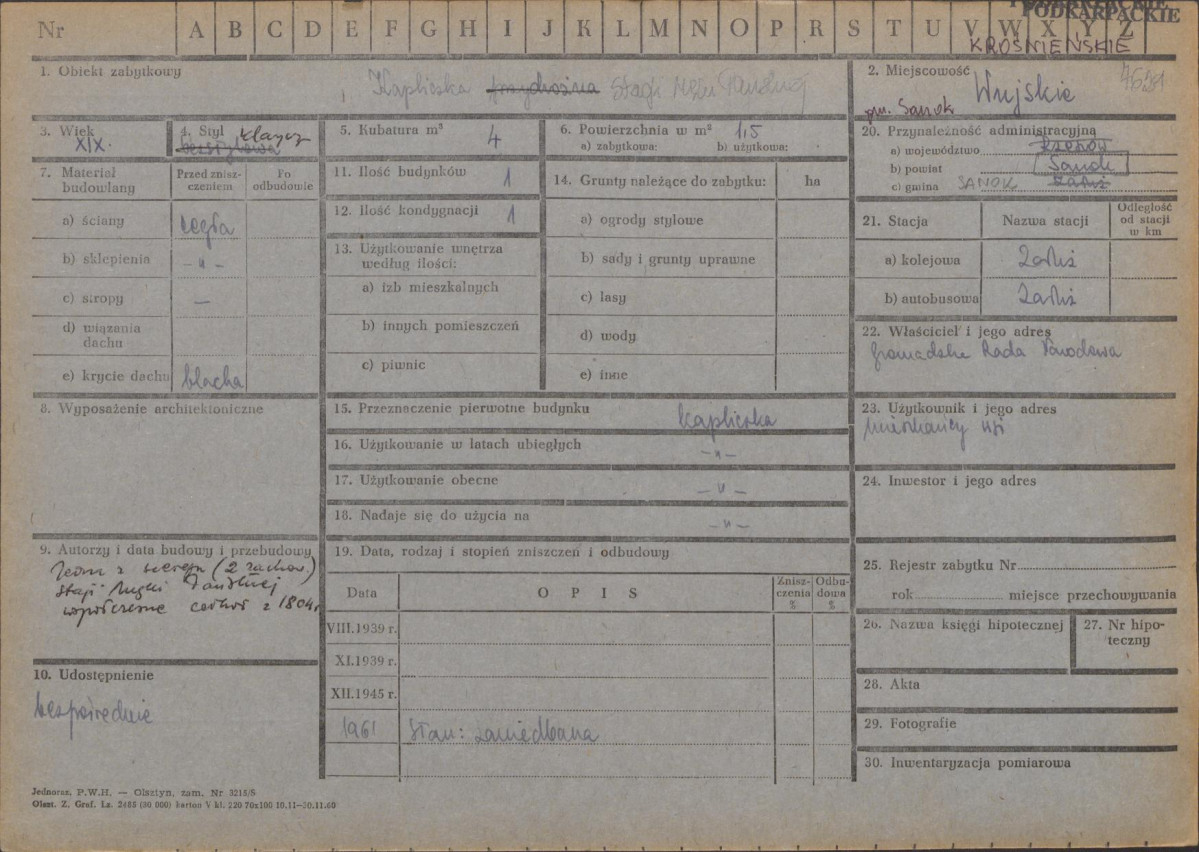 Nr A B C D E F G H I J K L M N O P R S T U V W X Y Z
PODKARPACKIE
KROŚNIEŃSKIE
1. Obiekt zabytkowy
Kapliczka przydrożna Stacji Męki Pańskiej
2. Miejscowość
Wujskie
gm. Sanok
3. Wiek
XIX.
4. Styl klasyc
bezstylowa
5. Kubatura m³
4
6. Powierzchnia w m² 1,5
a) zabytkowa: b) użytkowa:
20. Przynależność administracyjną
a) województwo Rzeszów
b) powiat Sanok
c) gmina SANOK Załuż
7. Materiał budowlany
Przed zniszczeniem
Po odbudowie
a) ściany cegła
b) sklepienia -"-
c) stropy —
d) wiązania dachu
e) krycie dachu blacha
11. Ilość budynków 1
12. Ilość kondygnacji 1
13. Użytkowanie wnętrza według ilości:
a) izb mieszkalnych
b) innych pomieszczeń
c) piwnic
14. Grunty należące do zabytku: ha
a) ogrody stylowe
b) sady i grunty uprawne
c) lasy
d) wody
e) inne
21. Stacja
Nazwa stacji
Odległość od stacji w km
a) kolejowa Załuż
b) autobusowa Załuż
22. Właściciel i jego adres
Gromadzka Rada Narodowa
8. Wyposażenie architektoniczne
15. Przeznaczenie pierwotne budynku kapliczka
16. Użytkowanie w latach ubiegłych -"-
17. Użytkowanie obecne -"-
18. Nadaje się do użycia na -"-
23. Użytkownik i jego adres
Mieszkańcy wsi
24. Inwestor i jego adres
9. Autorzy i data budowy i przebudowy
Jedna z szeregu (2 zachow.)
stacji Męki Pańskiej
współczesne cerkwi z 1804r
10. Udostępnienie
bezpośrednie
19. Data, rodzaj i stopień zniszczeń i odbudowy
Data
O P I S
Zniszczenia %
Odbudowa %
VIII.1939 r.
XI.1939 r.
XII.1945 r.
1961 Stan: zaniedbana
25. Rejestr zabytku Nr
rok miejsce przechowywania
26. Nazwa księgi hipotecznej
27. Nr hipoteczny
28. Akta
29. Fotografie
30. Inwentaryzacja pomiarowa
Jednoraz. P.W.H. — Olsztyn, zam. Nr 3215/S
Olszt. Z. Graf. Lz. 2485 (30 000) karton V kl. 220 70x100 10.11—30.11.60